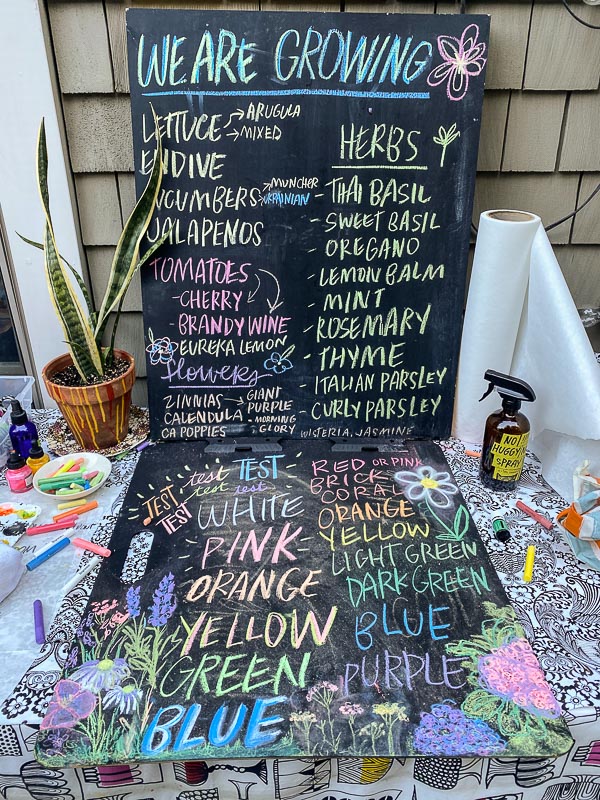 WE ARE GROWING
LETTUCE → ARUGULA
→ MIXED
ENDIVE
CUCUMBERS → MUNCHER
→ UKRAINIAN
JALAPENOS
TOMATOES
- CHERRY
- BRANDY WINE
EUREKA LEMON
flowers
ZINNIAS → GIANT
PURPLE
CALENDULA → MORNING
GLORY
CA POPPIES
HERBS
- THAI BASIL
- SWEET BASIL
- OREGANO
- LEMON BALM
- MINT
- ROSEMARY
- THYME
- ITALIAN PARSLEY
- CURLY PARSLEY
WISTERIA, JASMINE
TEST test TEST
TEST test test
WHITE
PINK
ORANGE
YELLOW
GREEN
BLUE
RED OR PINK
BRICK
CORAL
ORANGE
YELLOW
LIGHT GREEN
DARK GREEN
BLUE
PURPLE
NO
HUGGING
SPRAY